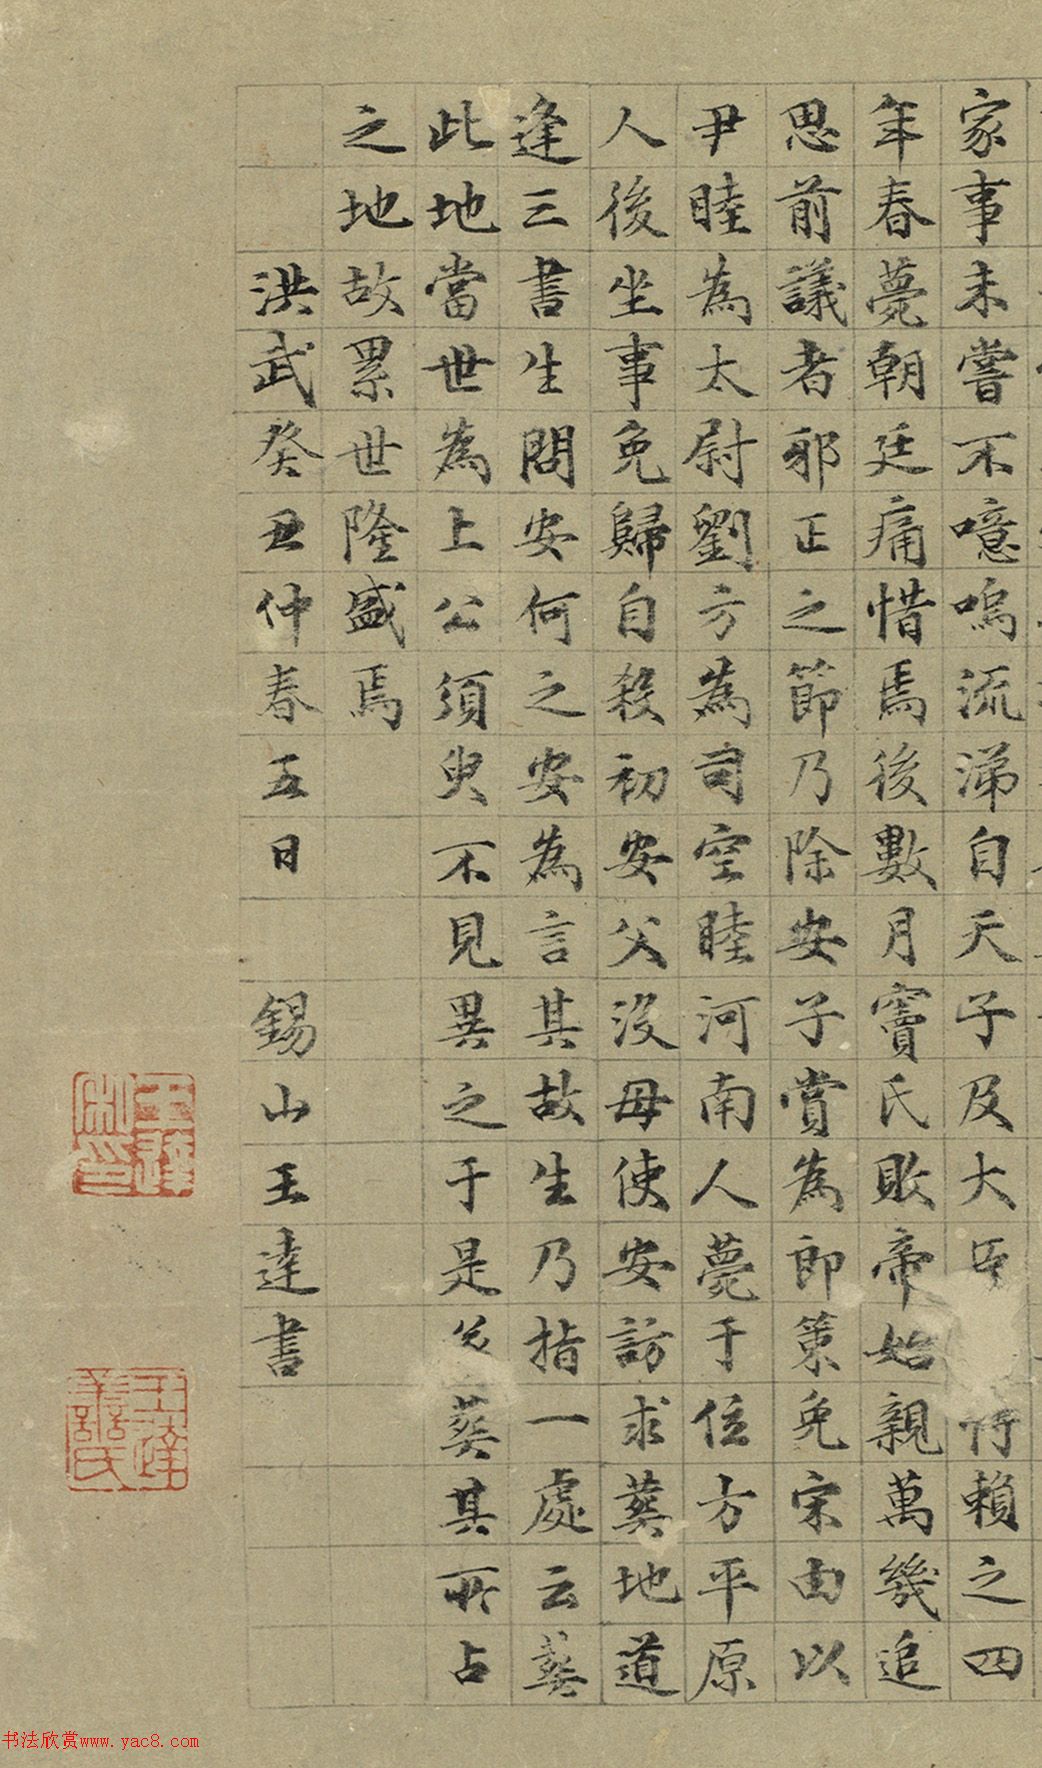 家事未嘗不噫嗚流涕自天子及大臣恃賴之四
年春薨朝廷痛惜焉後數月竇氏敗帝始親萬幾追
思前議者邪正之節乃除安子賞為郎策免宋由以
尹睦為太尉劉方為司空睦河南人薨于位方平原
人後坐事免歸自殺初安父沒母使安訪求葬地道
逢三書生問安何之安為言其故生乃指一處云葬
此地當世為上公須臾不見異之于是葬其所占
之地故累世隆盛焉
洪武癸丑仲春五日 錫山王達書
王達善氏
书法欣赏www.yac8.com